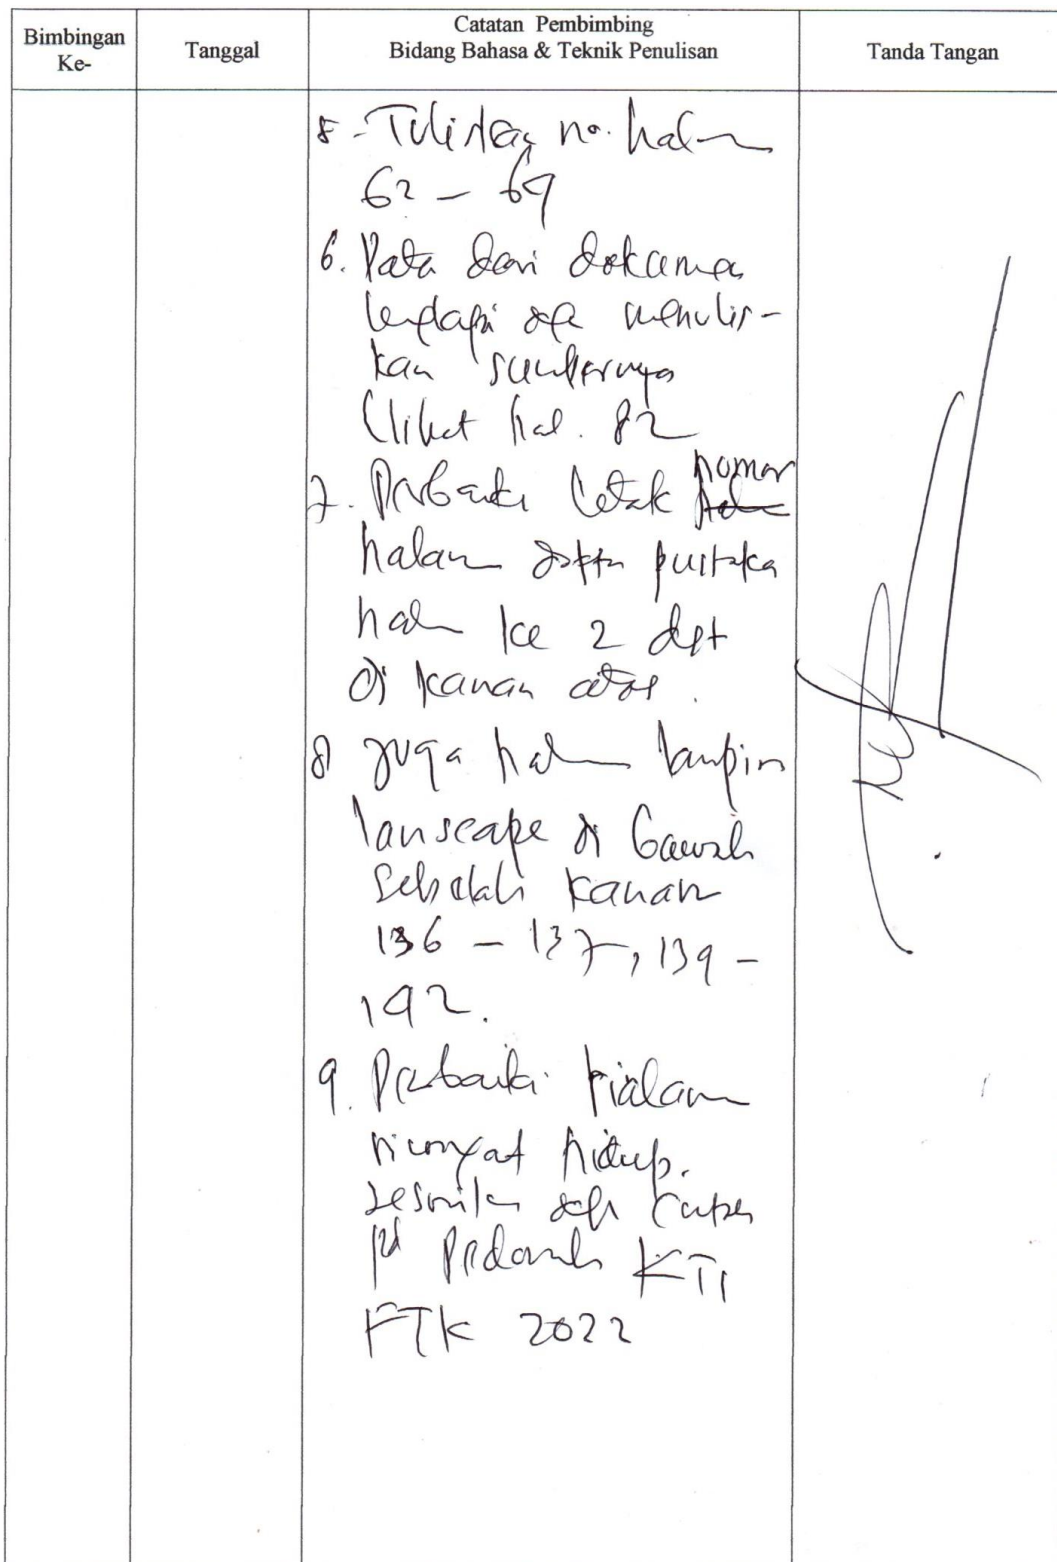 Bimbingan
Ke-
Tanggal
Catatan Pembimbing
Bidang Bahasa & Teknik Penulisan
Tanda Tangan
no. halm
62 - 69
6. Data dari dokumen
lengkapi dg menulis-
kan sumbernya
(lihat hal. 82
7. Perbaiki letak nomor
halam daftar pustaka
halm ke 2 dst
di kanan atas.
8 Juga halm lampir
lanscape di bawah
sebelah kanan
136 - 137, 139 -
142.
9. Perbaiki
riwayat hidup.
sesuaikan dg
pd Pedoman KTI
FTK 2022